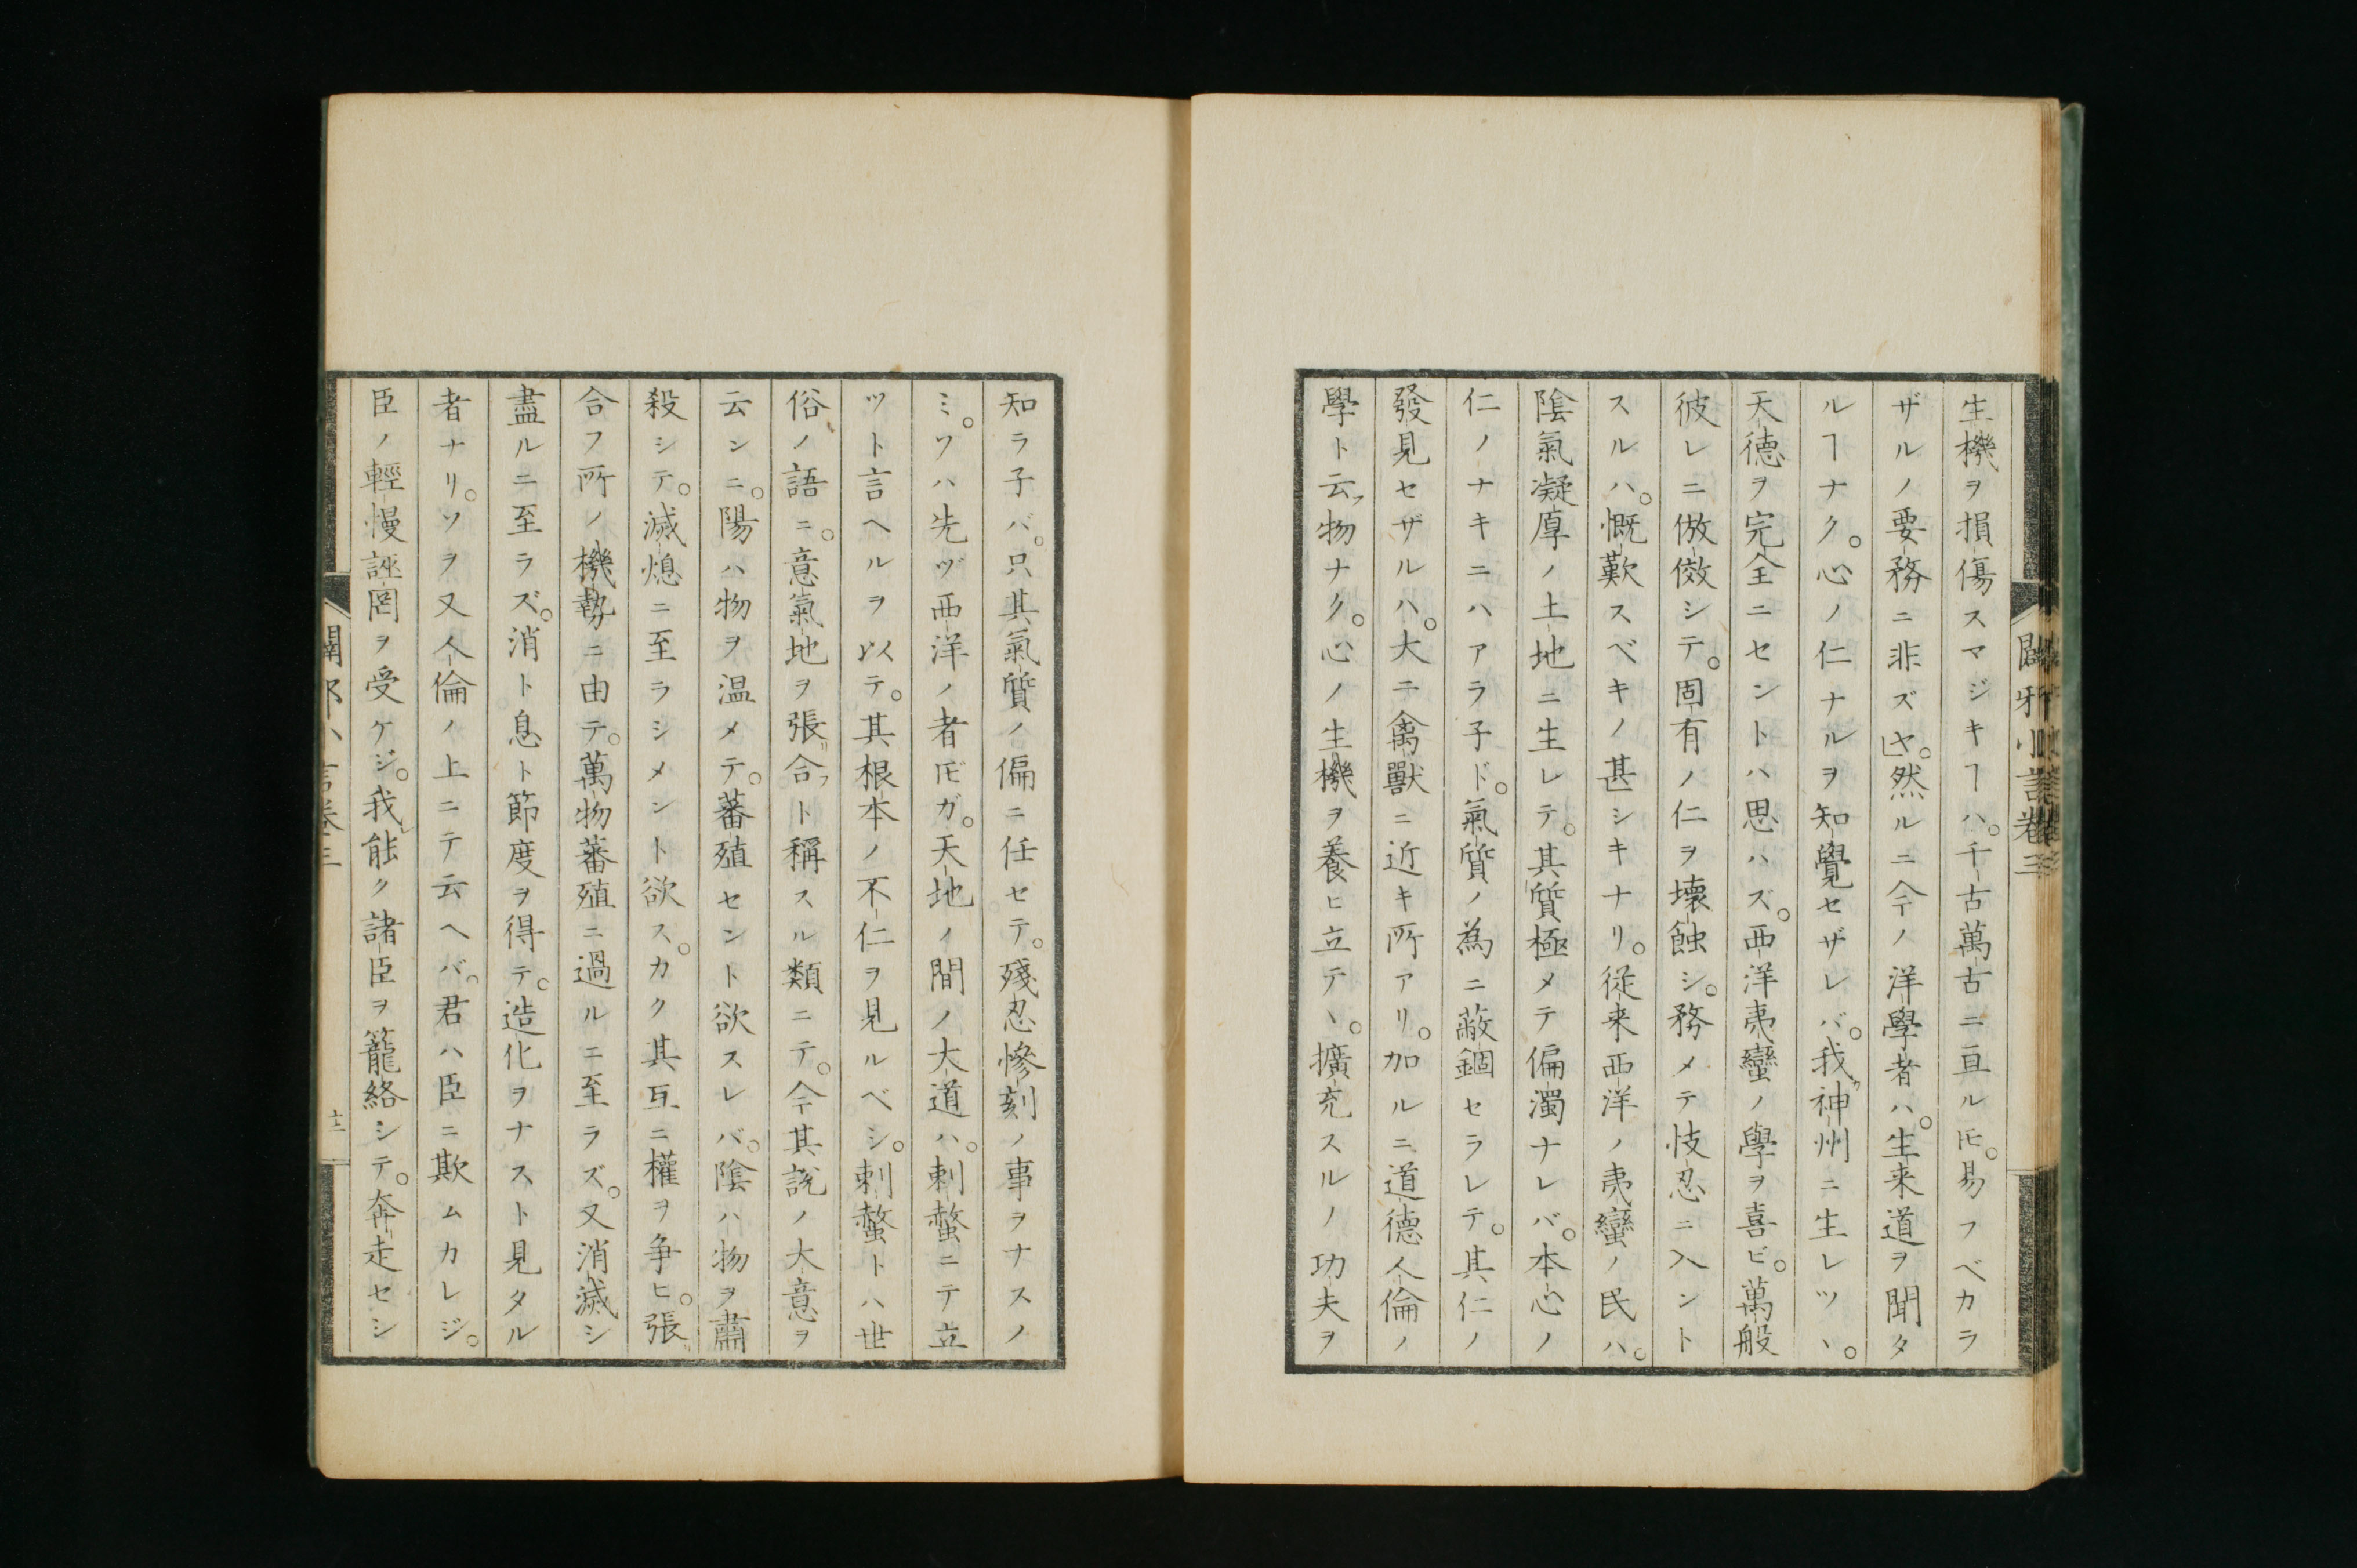 闢邪小言卷三
生機ヲ損傷スマジキヿハ。千古萬古ニ亘ルㇳモ。易フベカラ
ザルノ要務ニ非ズヤ。然ルニ今ノ洋學者ハ。生来道ヲ聞タ
ルヿナク。心ノ仁ナルヲ知覺セザレバ。我神州ニ生レツヽ。
天德ヲ完全ニセントハ思ハズ。西洋夷蠻ノ學ヲ喜ビ。萬般
彼レニ倣傚シテ。固有ノ仁ヲ壊蝕シ。務メテ忮忍ニ入ント
スルハ。慨歎スベキノ甚シキナリ。従来西洋ノ夷蠻ノ民ハ。
陰氣凝厚ノ土地ニ生レテ。其質極メテ偏濁ナレバ。本心ノ
仁ノナキニハアラ子ド。氣質ノ為ニ蔽錮セラレテ。其仁ノ
發見セザルハ。大ニ禽獸ニ近キ所アリ。加ルニ道德人倫ノ
學ト云フ物ナク。心ノ生機ヲ養ヒ立テヽ。擴充スルノ功夫ヲ
知ラ子バ。只其氣質ノ偏ニ任セテ。殘忍慘刻ノ事ヲナスノ
ミ。ワハ先ヅ西洋ノ者ㇳモガ。天地ノ間ノ大道ハ。刺螫ニテ立
ツト言ヘルヲ以テ。其根本ノ不仁ヲ見ルベシ。刺螫トハ世
俗ノ語ニ。意氣地ヲ張合フト稱スル類ニテ。今其説ノ大意ヲ
云ンニ。陽ハ物ヲ温メテ。蕃殖セント欲スレバ。陰ハ物ヲ肅
殺シテ。滅熄ニ至ラシメント欲ス。カク其互ニ權ヲ争ヒ。張
合フ所ノ機勢ニ由テ。萬物蕃殖ニ過ルニ至ラズ。又消滅シ
盡ルニ至ラズ。消ト息ト節度ヲ得テ。造化ヲナスト見タル
者ナリ。ソヲ又人倫ノ上ニテ云ヘバ。君ハ臣ニ欺ムカレジ。
臣ノ輕慢誣罔ヲ受ケジ。我能ク諸臣ヲ籠絡シテ。奔走セシ
闢邪小言卷三
十二